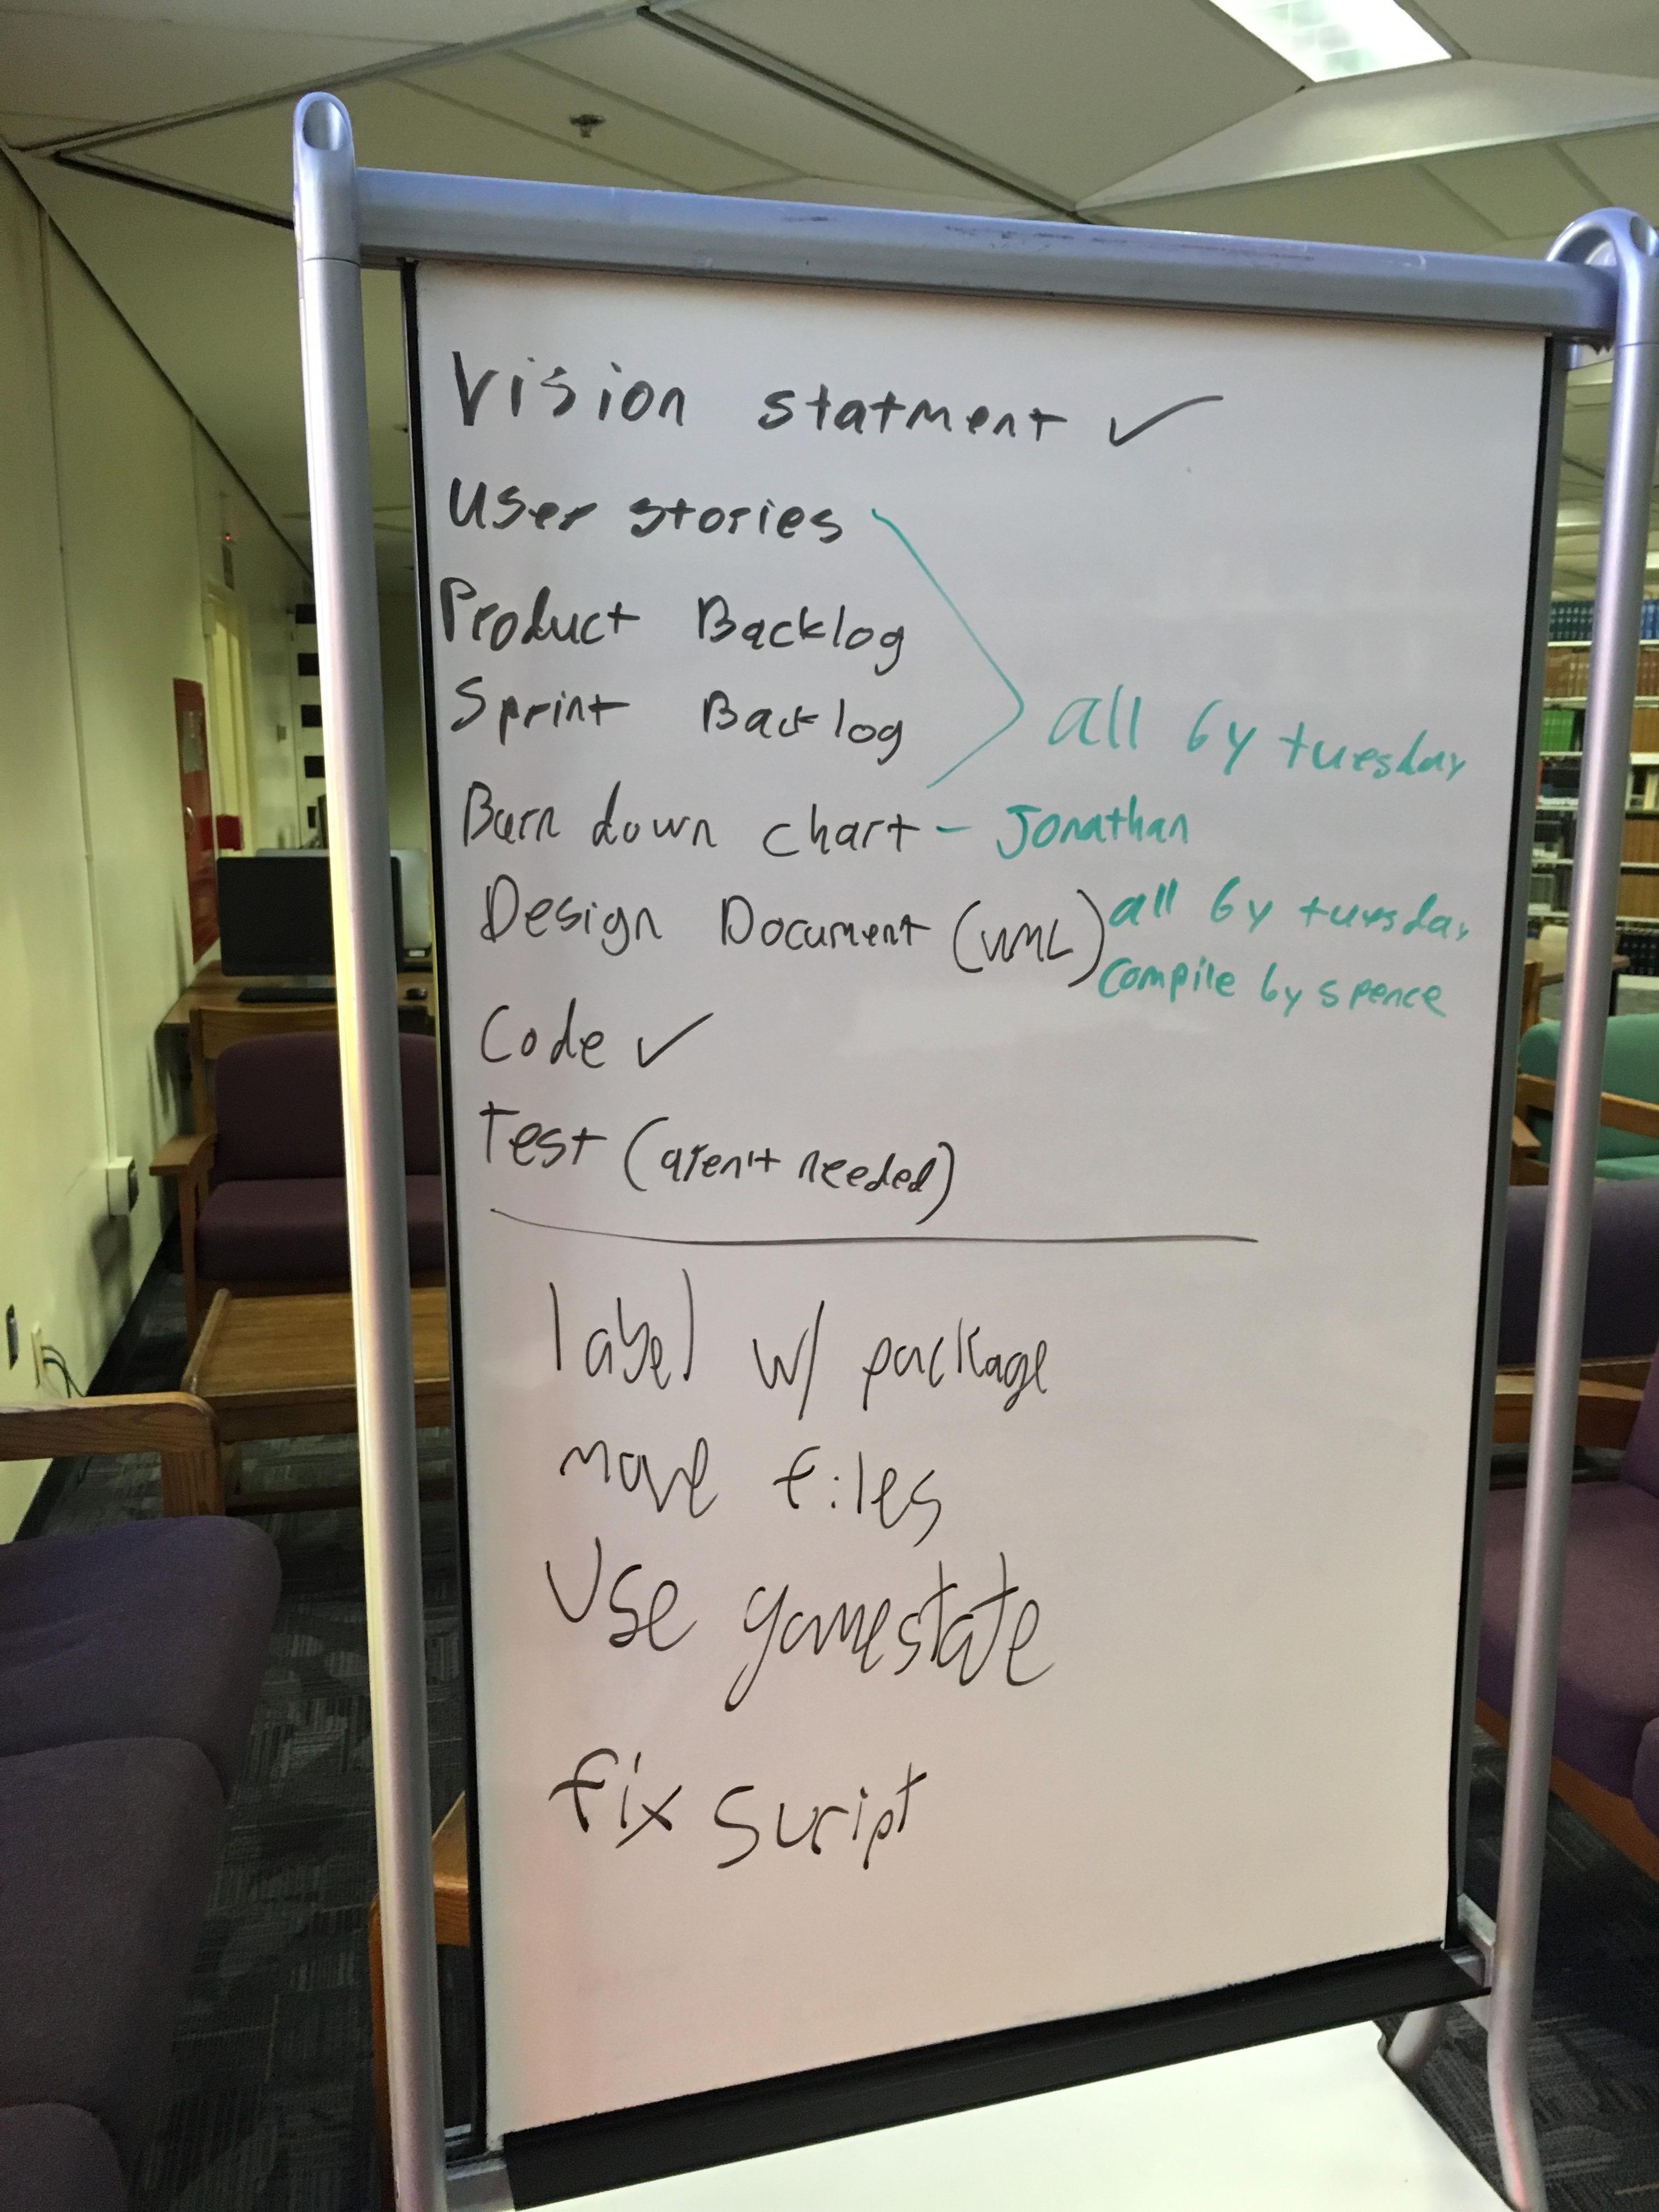 Vision statment ✓
User stories
Product Backlog
Sprint Backlog
all by tuesday
Burn down chart - Jonathan
Design Document (UML) all by tuesday
compile by spence
Code ✓
Test (aren't needed)
label w/ package
move files
Use gamestate
fix script